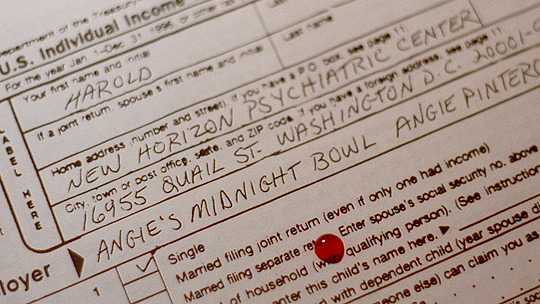 Department of the Treasury
U.S. Individual Income
For the year Jan. 1-Dec. 31, 1996, or other tax
Your first name and initial
Last name
HAROLD
If a joint return, spouse's first name and initial
Last name
Home address (number and street). If you have a P.O. box, see page 11
NEW HORIZON PSYCHIATRIC CENTER
City, town or post office, state, and ZIP code. If you have a foreign address, see page 11
16955 QUAIL ST. WASHINGTON D.C. 20001-
ANGIE'S MIDNIGHT BOWL ANGIE PINTERO
LABEL HERE
loyer
1
Single
Married filing joint return (even if only one had income)
Married filing separate Enter spouse's social security no. above
of household (with qualifying person). (See instruction
enter this child's name here.
with dependent child (year spouse di
someone else) can claim you as